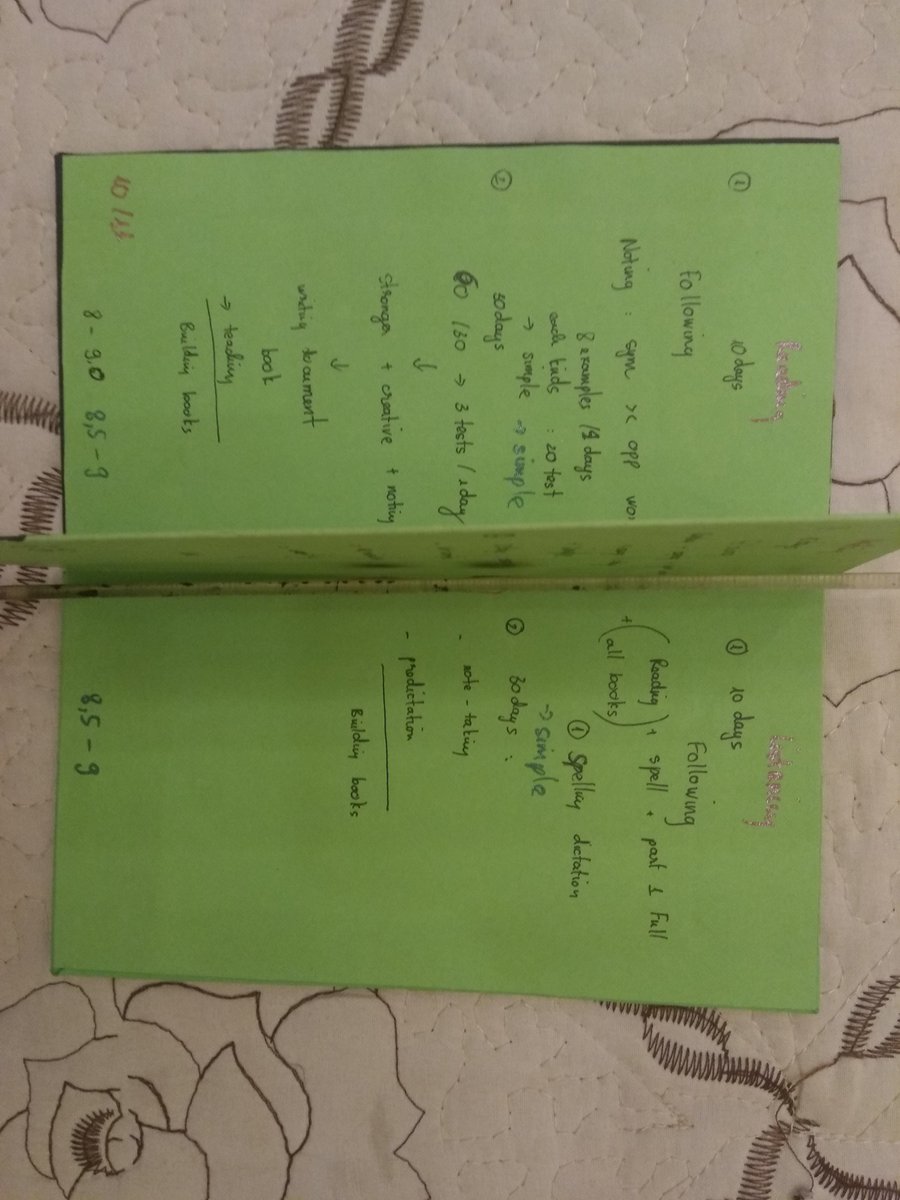 Reading
① 10 days
Following
Noting : sym >< opp
8 examples / days
each kinds : 20 test
→ simple → simple
② 50 days
60 / 30 → 3 tests / 1 day
↓
stronger + creative + noting
↓
writing document
book
→ teaching
Building books
8 - 9,0 8,5 - 9
Listening
① 10 days
Following
(Reading) + spell + part 1 Full
+ (all books)
① Spelling dictation
→ simple
② 30 days :
- note - taking
- predictation
Building books
8,5 - 9